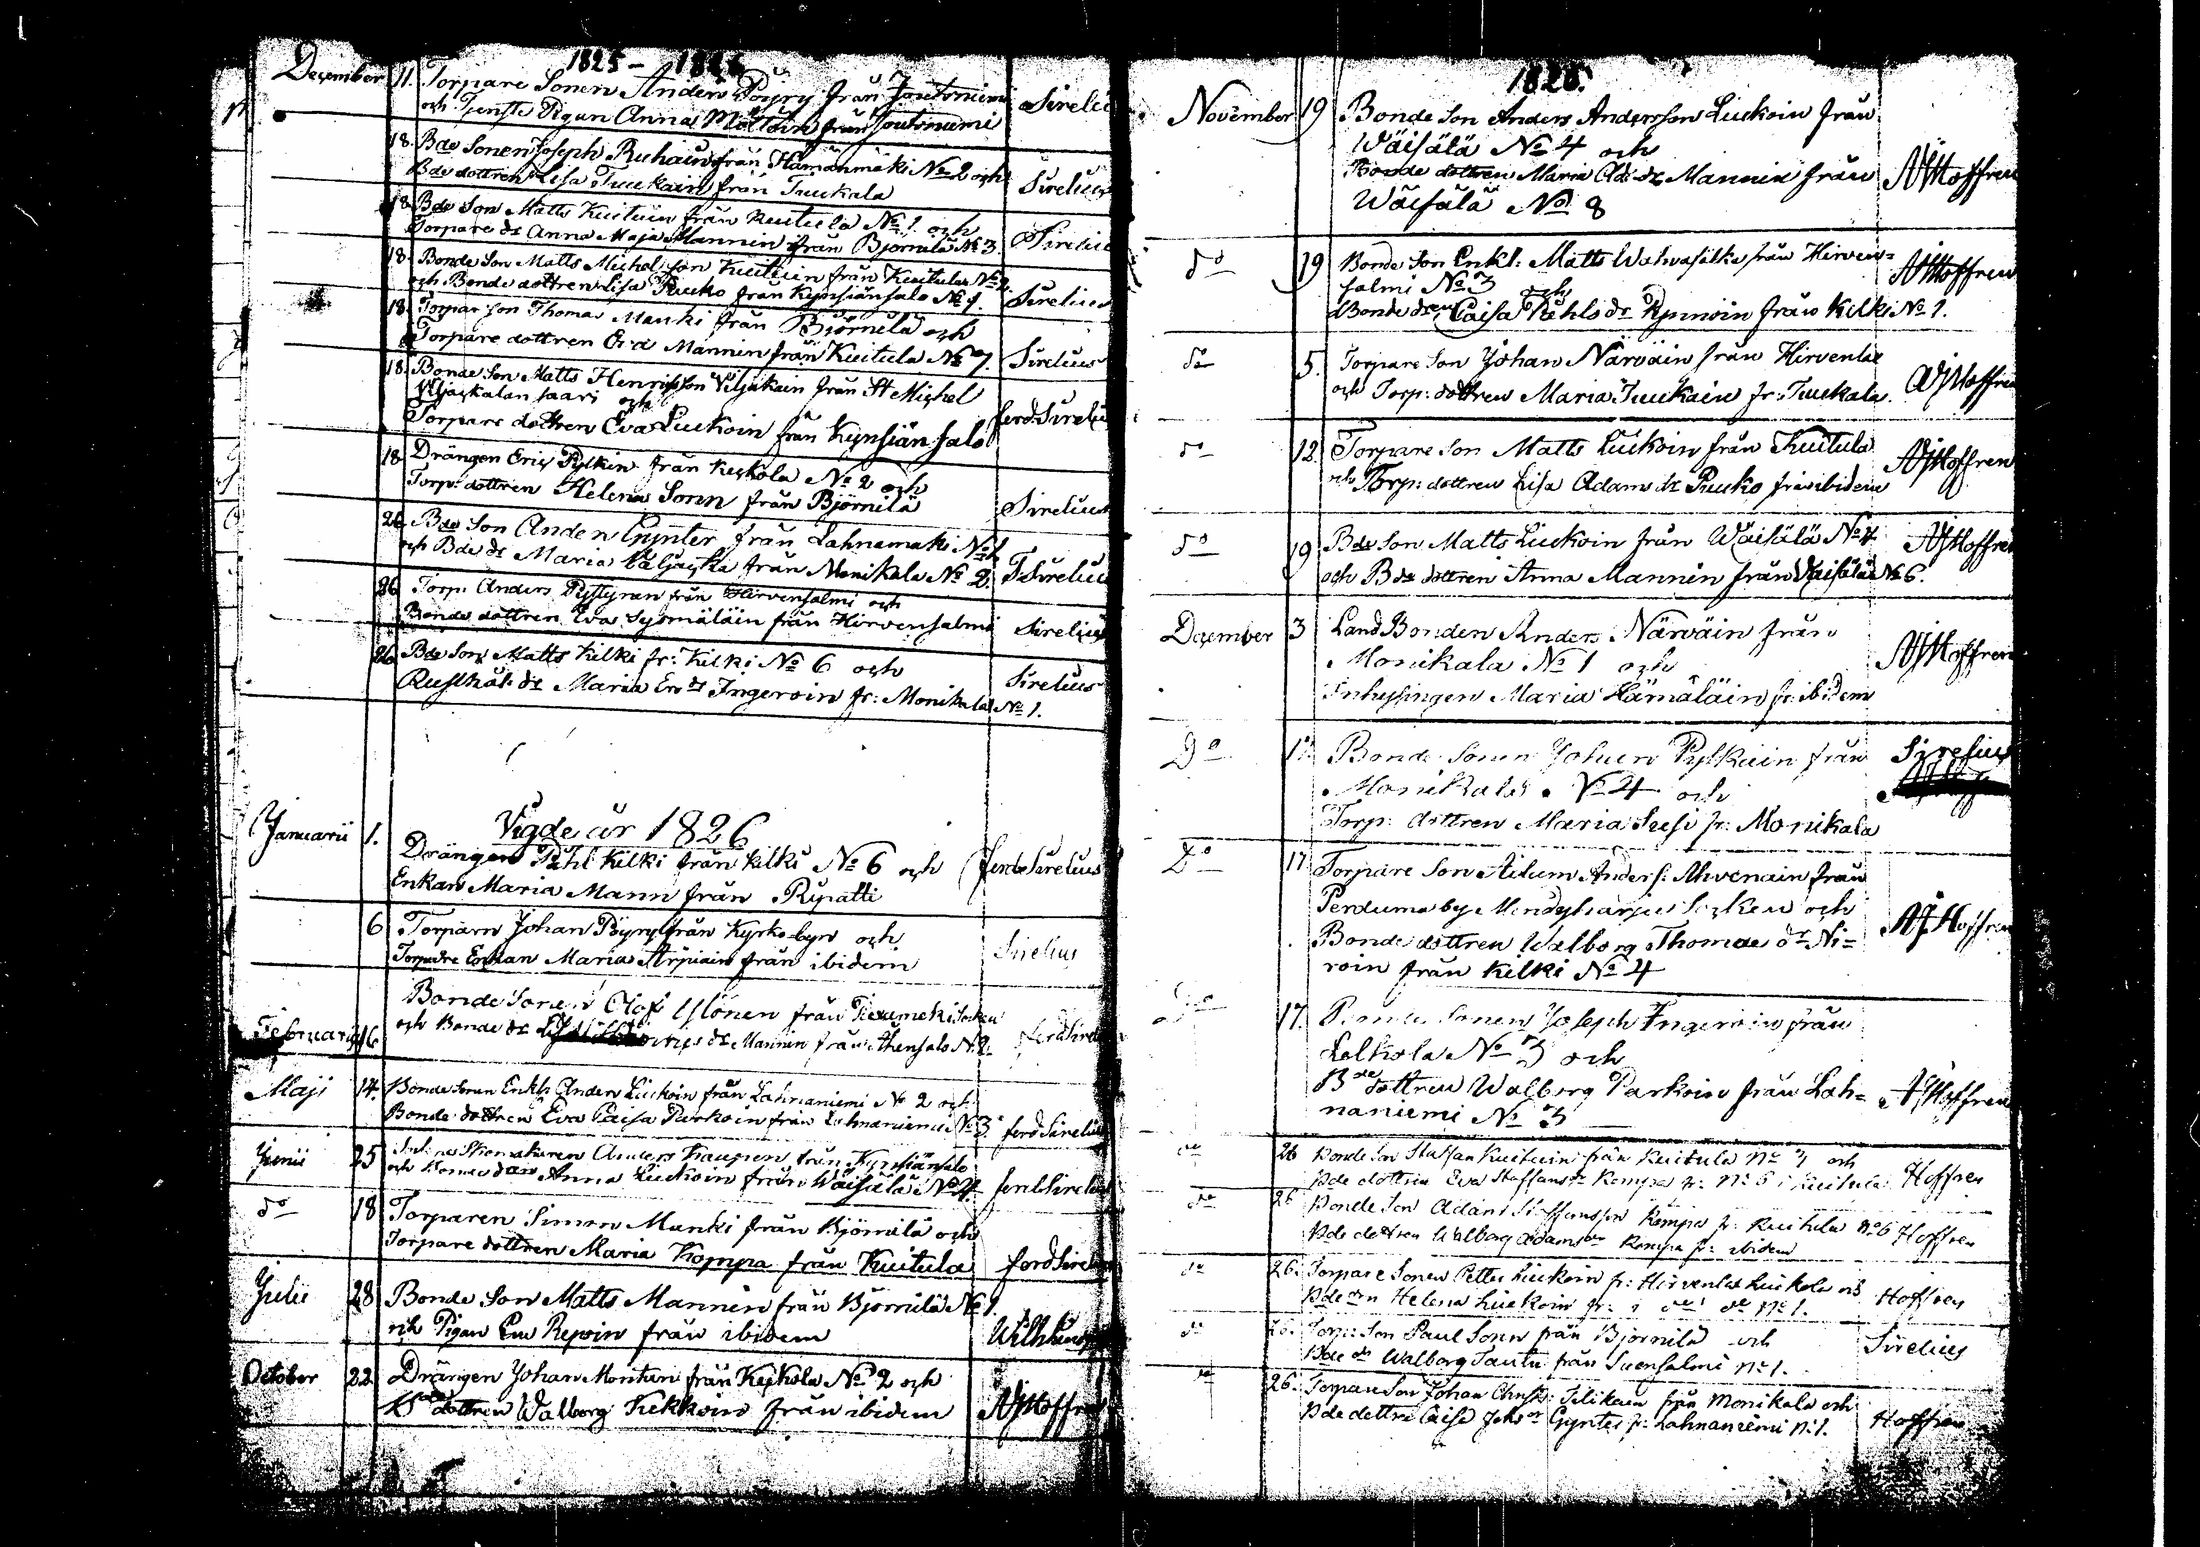 1825 - 1826
December 11. Torpare Sonen Anders Pöyry från Joutsniemi
och Tjenste Pigan Anna Möttöin från Joutsniemi Sirelius
18. Bde Sonen Joseph Ruhain från Hämänmäki No 2 och
Bde dottren Lisa Tuukain från Tuukala Sirelius
18. Bde Son Matts Kuituin från Kuitula No 1. och
Torpare dr Anna Maja Mannin från Björnilä No 3 Sirelius
18. Bonde Son Matts Michelsson Kuituin från Kuitula No 2.
och Bonde dottren Lisa Puuko från Kynsiänsalo No 1. Sirelius
18. Torpar Son Thomas Manki från Björnilä och
Torpare dottren Eva Mannin från Kuitula No 7. Sirelius
18. Bonde Son Matts Henricsson Viljakain från St Michel
och
Torpare dottren Eva Luukoin från Kynsiänsalo Ferd: Sirelius
18 Drängen Eric Pylkin från Keckola No 2 och
Torp: dottren Helena Sonn från Björnilä Sirelius
26. Bde Son Anders Gynter från Lahnamaki No 1
och Bde dr Maria Valjacka från Monikala No 2. F Sirelius
26 Torp: Anders Pystynen från Hirvensalmi och
Bonde dottren Eva Sysmäläin från Hirvensalmi Sirelius
26 Bde Son Matts Kilki fr: Kilki No 6 och
Rusthål: dr Maria Ers dr Ingeroin fr: Monikala No 1. Sirelius
Vigde år 1826
Januarii 1. Drängen Påhl Kilki från Kilki No 6 och
Enkan Maria Mann från Ripatti Ferd Sirelius
6 Torparn Johan Pöyry från Kyrkobyn och
Torpare Enkan Maria Arpiain från ibidem Sirelius
Februarii 16 Bonde Sonen Olof Ylönen från Piexämeki Socken
och Bonde dr dr Mannin från Ahensalo No 2. Ferd Sirelius
Maji 14. Bonde Sonen Enkl: Anders Liukoin från Lahnaniemi No 2 och
Bonde dottren Eva Caisa Parkoin från Lahnaniemi No 3. Ferd Sirelius
Junii 25 Anders Kaupien från Kynsiänsalo
och Bonde dren Anna Liukoin från Wäisälä No 4. Ferd Sirelius
do 18 Torparen Simon Manki från Björnilä och
Torpare dottren Maria Kamppa från Kuitula Ferd Sirelius
Julii 28 Bonde Son Matts Mannin från Björnilä No 1.
och Pigan Eva Repoin från ibidem
October 22 Drängen Johan Montun från Keckola No 2 och
Bde dottren Walborg Kekkoin från ibidem AJHoffren
1826.
November 19 Bonde Son Anders Andersson Liukoin från
Wäisälä No 4 och
Bonde dottren Maria Ad: dr Mannin från AJHoffren
Wäisälä No 8
do 19 Bonde Son Enkl: Matts Wahvaselkä från Hirven=
salmi No 3 och AJHoffren
Bonde dren Caisa Påhls dr Kynnoin från Kilki No 1.
do 5. Torpare Son Johan Närväin från Hirvenlax
och Torp: dottren Maria Tuukain fr: Tuukala. AJHoffren
do 12. Torpare Son Matts Liukoin från Kuitula
och Torp: dottren Lisa Adams dr Puuko från ibidem AJHoffren
do 19 Bde Son Matts Liukoin från Wäisälä No 4
och Bde dottren Anna Mannin från Waisälä No 6. AJHoffren
December 3 Land Bonden Anders Närväin från
Monikala No 1 och
Inhysingen Maria Hämäläin fr: ibidem AJHoffren
Do 17. Bonde Sonen Johan Pylkäin från Sirelius
Monikala No 4 och
Torp: dottren Maria Seesi fr: Monikala
Do 17. Torpare Son Adam Anders: Ahvenain från
Perdumaby Mändyharju Socken och
Bonde dottren Walborg Thomae dr Ni= AJHoffren
roin från Kilki No 4
Do 17. Bonde Sonen Joseph Ingeroin från
Lelkola No 3 och
Bde dottren Walborg Parkoin från Lah= AJHoffren
naniemi No 3
do 26 Bonde Son Staffan Kuituin från Kuitula No 7 och
Bde dottren Eva Staffans dr Kämpa fr: No 6 i Kuitula Hoffren
do 26 Bonde Son Adam Staffansson Kämpa fr: Kuitula No 6
Bde dottren Walborg Adams dr Kämpa fr: ibidem Hoffren
do 26. Torpare Sonen Petter Liukoin fr: Hirvenlax Liukola och
Bde dren Helena Liukoin fr: i do do No 1. Hoffren
do 26. Torp: Son Paul Sonn från Björnilä och
Bde dr Walborg Tautu från Suonsalmi No 1. Sirelius
do 26. Torpare Son Johan Christ: Tilikain från Monikala och
Bde dottre Caisa Johs dr Gynter fr: Lahnaniemi No 1. Hoffren